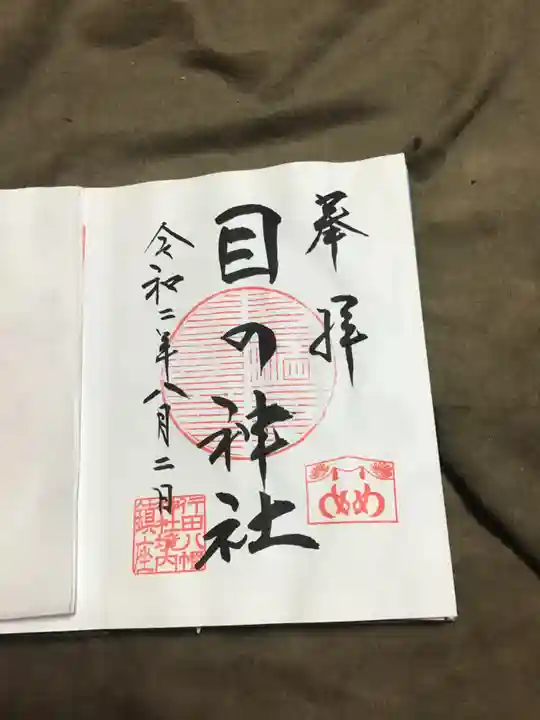 奉拝
目の神社
めめ
令和二年八月二日
行田八幡
神社境内
鎮座